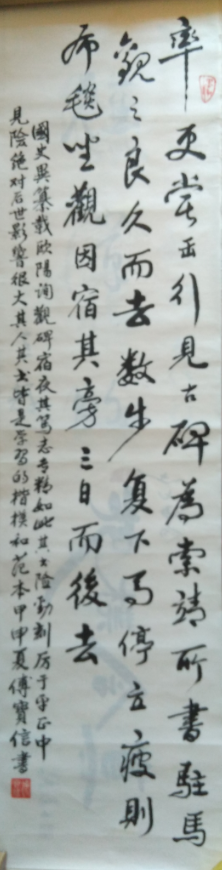 率更尝出行见古碑為索靖所書駐馬
觀之良久而去数步复下马停立疲則
布毯坐觀因宿其旁三日而後去
國史異纂载欧陽询觀碑宿夜其笃志专精如此其书险劲刻厉于平正中
見险绝对后世影响很大其人其书時是学習的楷模和范本甲申夏傅寶信書